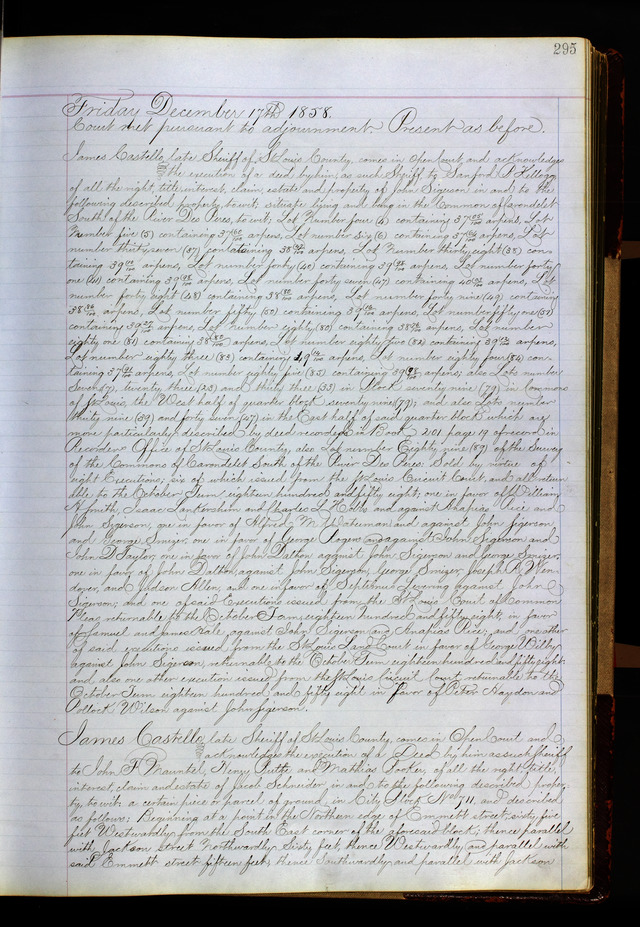 295
Friday December 17th 1858.
Court met pursuant to adjournment. Present as before.
James Castello, late Sheriff of St Louis County, comes in Open Court, and acknowledges
the execution of a deed by him, as such Sheriff to Sanford P. Kellogg
of all the right, title, interest, claim, estate and property of John Sigerson in and to the
following described property to wit; situate lying and being in the Common of Carondelet
South of the River Des Peres, to wit; Lot Number four (4) containing 37 arpens, Lot
Number five (5) containing 37 arpens, Lot number Six (6) containing 37 arpens, Lot
number thirty seven (37) containing 38 arpens, Lot Number thirty eight (38) con-
taining 39 arpens, Lot number forty (40) containing 39 arpens, Lot number forty
one (41) containing 39 arpens, Lot number forty seven (47) containing 40 arpens, Lot
number forty eight (48) containing 38 arpens, Lot number forty nine (49) containing
38 arpens, Lot number fifty (50) containing 39 arpens, Lot number fifty one (51)
containing 39 arpens, Lot number eighty (80) containing 38 arpens, Lot number
eighty one (81) containing 38 arpens, Lot number eighty two (82) containing 39 arpens,
Lot number eighty three (83) containing 39 arpens, Lot number eighty four (84) con-
taining 37 arpens, Lot number eighty five (85) containing 39 arpens; also Lots number
Seven (7) twenty three (23) and thirty three (33) in Block seventy nine (79) in Commons
of St Louis, the West half of quarter block seventy nine (79); and also Lots number
thirty nine (39) and forty seven (47) in the East half of said quarter block which are
more particularly described by deed recorded in Book 201 page 19 of record in
Recorders Office of St Louis County, also Lot number Eighty nine (89) of the Survey
of the Commons of Carondelet South of the River Des Peres. Sold by virtue of
eight Executions; six of which issued from the St Louis Circuit Court and all return-
able to the October Term eighteen hundred and fifty eight; one in favor of William
H. Smith, Isaac Lankershim and Charles L. and against Anapias Rice and
John Sigerson, one in favor of Alfred M. Waterman and against John Sigerson
and George Smizer, one in favor of George Rogers and against John Sigerson and
John D. Taylor, one in favor of John Dalton against John Sigerson and George Smizer,
one in favor of John Dalton, against John Sigerson, George Smizer, Joseph R. Wen-
dover, and Judson Allen, and one in favor of Septimus Levering against John
Sigerson; and one of said Executions issued from the St Louis Court of Common
Pleas returnable to the October Term, eighteen hundred and fifty eight, in favor
of Samuel and James Gale, against John Sigerson and Anapias Rice; and one other
of said executions issued from the St Louis Land Court in favor of George Bilby
against John Sigerson, returnable to the October Term eighteen hundred and fifty eight
and also one other execution issued from the St Louis Circuit Court returnable to the
October Term eighteen hundred and fifty eight in favor of Peter Haydon and
Pollock Wilson against John Sigerson.
James Castello, late Sheriff of St Louis County, comes in Open Court and
acknowledges the execution of a Deed by him as such Sheriff
to John F. Mauntel, Henry and Mathias of all the right, title,
interest, claim and estate of Jacob Schneider, in and to the following described proper-
ty, to wit: a certain piece or parcel of ground, in City Block No 711, and described
as follows: Beginning at a point in the Northern edge of Emmett street, sixty five
feet Westwardly from the South East corner of the aforesaid block, thence parallel
with Jackson street Northwardly Sixty feet, thence Westwardly, and parallel with
said Emmett street fifteen feet; thence Southwardly and parallel with Jackson